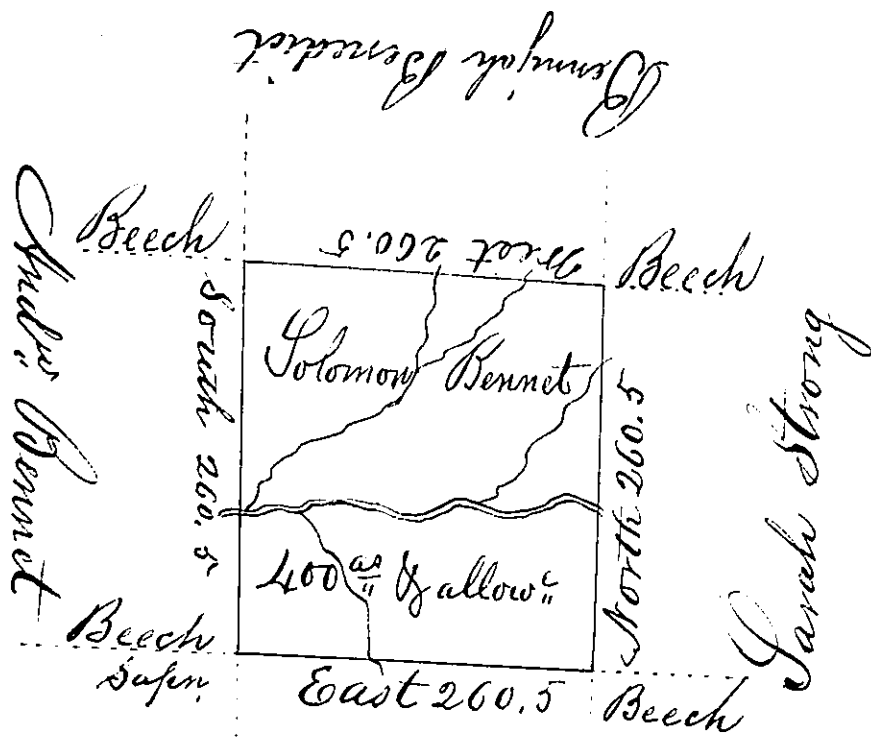 Bennijah Benedict
Beech
West 260.5
Beech
Andw. Bennet
South 260.5
Solomon Bennet
North 260.5
Sarah Strong
400 as & allowc
Beech
East 260.5
Beech